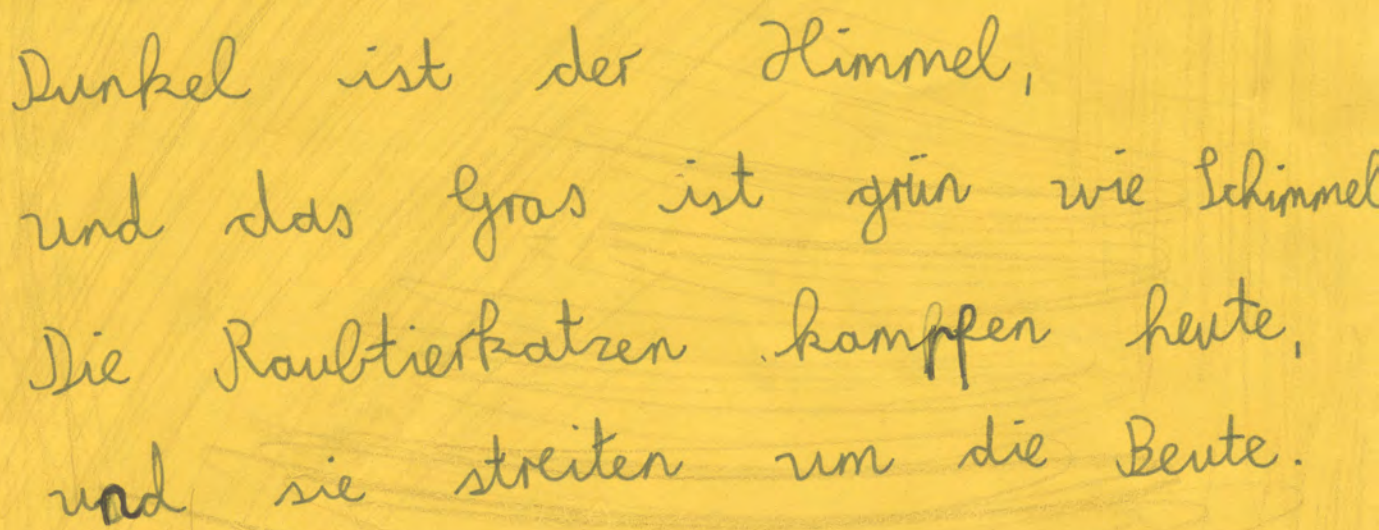 Dunkel ist der Himmel,
und das Gras ist grün wie Schimmel
Die Raubtierkatzen kampfen heute,
und sie streiten um die Beute.